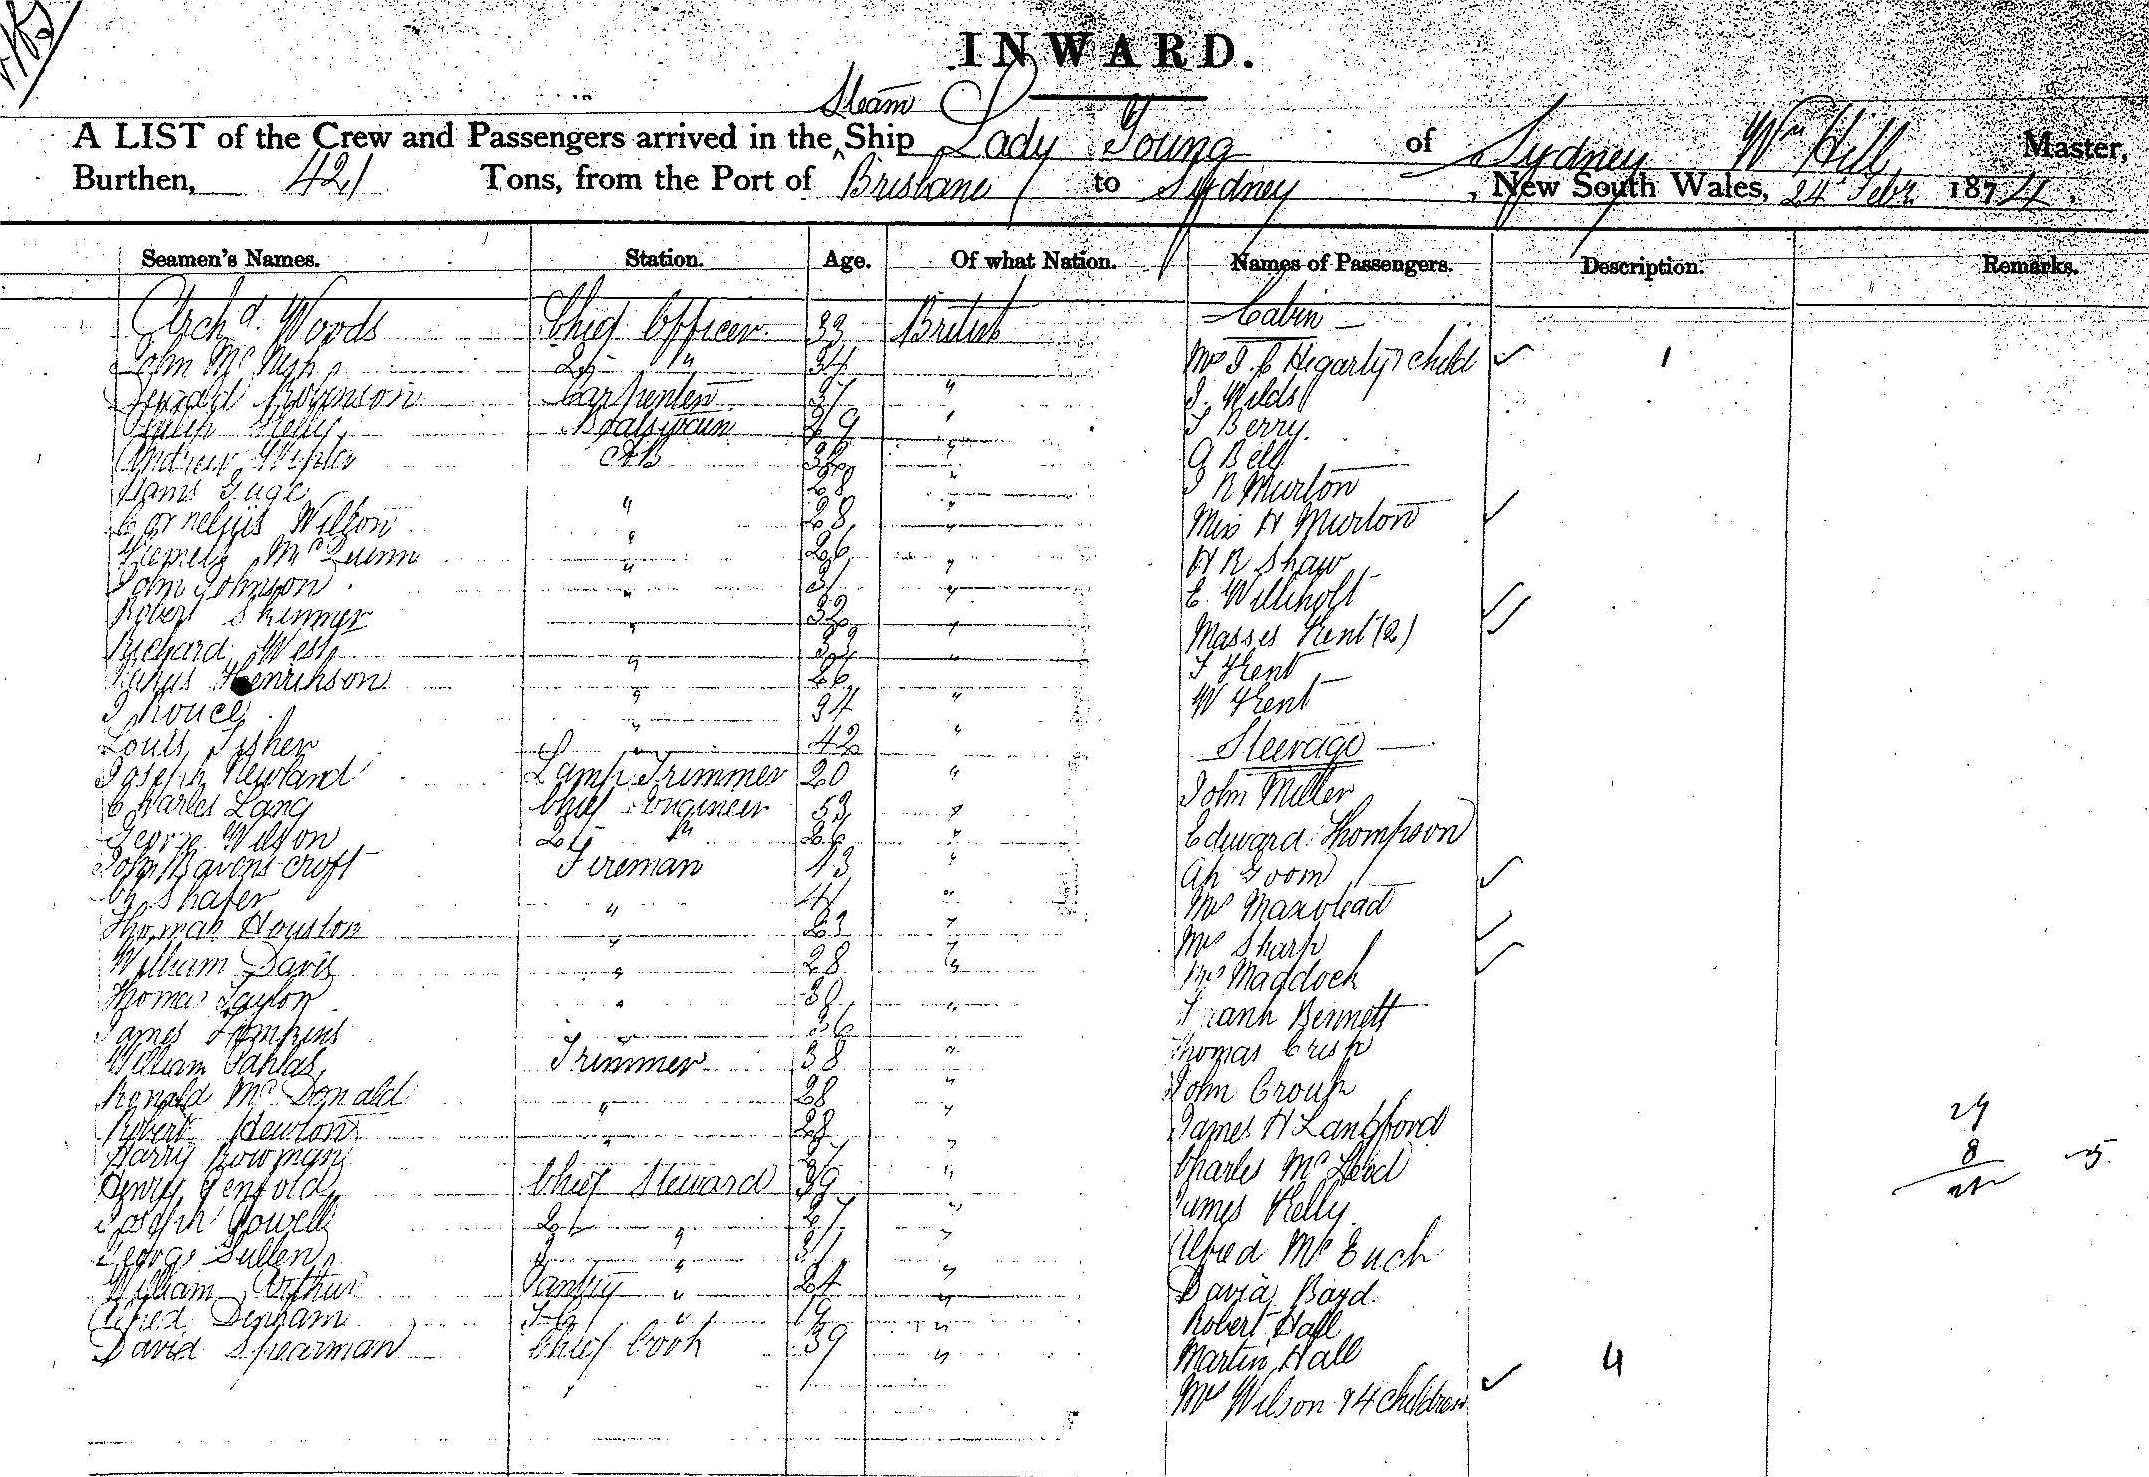 INWARD.
Steam
A LIST of the Crew and Passengers arrived in the ^ Ship Lady Young of Sydney Wm Hill Master,
Burthen, 421 Tons, from the Port of Brisbane to Sydney, New South Wales, 24 Febr 1874.
Seamen's Names. Station. Age. Of what Nation. Names of Passengers. Description. Remarks.
Archd. Woods Chief Officer 33 British Cabin
John McNish 2d " 34 Mrs J. C Hegarty & child ✓ 1
Robinson Carpenter 37 " J. Wilds
Kelly Boatswain 29 " J Berry
Andrew AB " A Bell
Hans 28 " J R Murton
Cornelius Wilson " 28 " Miss H Murton ✓
McQuinn " 26 " H R Shaw
John Johnson " 31 " E
Robert Skinner " 32 " Misses Kent (2) ✓✓
Richard West " " J Kent
Henrikson " 26 " W Kent
J " 34 " Steerage
Louis Fisher " 42 "
Joseph Newland Lamp Trimmer 20 " John Miller
Charles Lang Chief Engineer 53 " Edward Thompson
George Wilson 2d " 26 " Ah Goom
John Ravenscroft Fireman 43 " Mrs ✓
Ch Shafer " 41 " Mrs Sharp ✓
Thomas Houston " 23 " Mrs Maddock ✓
William Davis " 28 " Frank Bennett
Thomas Taylor " 38 " Thomas Crisp
James Tompkins " 36 " John Crouch
William Trimmer 38 " James H Langford
Ronald McDonald " 28 " Charles McLeod
Robert Newton " 28 " James Kelly
Harry Bowman " 27 " Alfred McEuch
Henry Penfold Chief Steward 39 " David Boyd
Joseph Powell 2d " 27 " Robert Hall
George Sullen 3 " 31 " Martin Hall
William Arthur Pantry " 24 " Mrs Wilson & 4 children ✓ 4
Alfred Denham " 19 "
David Spearman Chief Cook 39 "
29
8
5